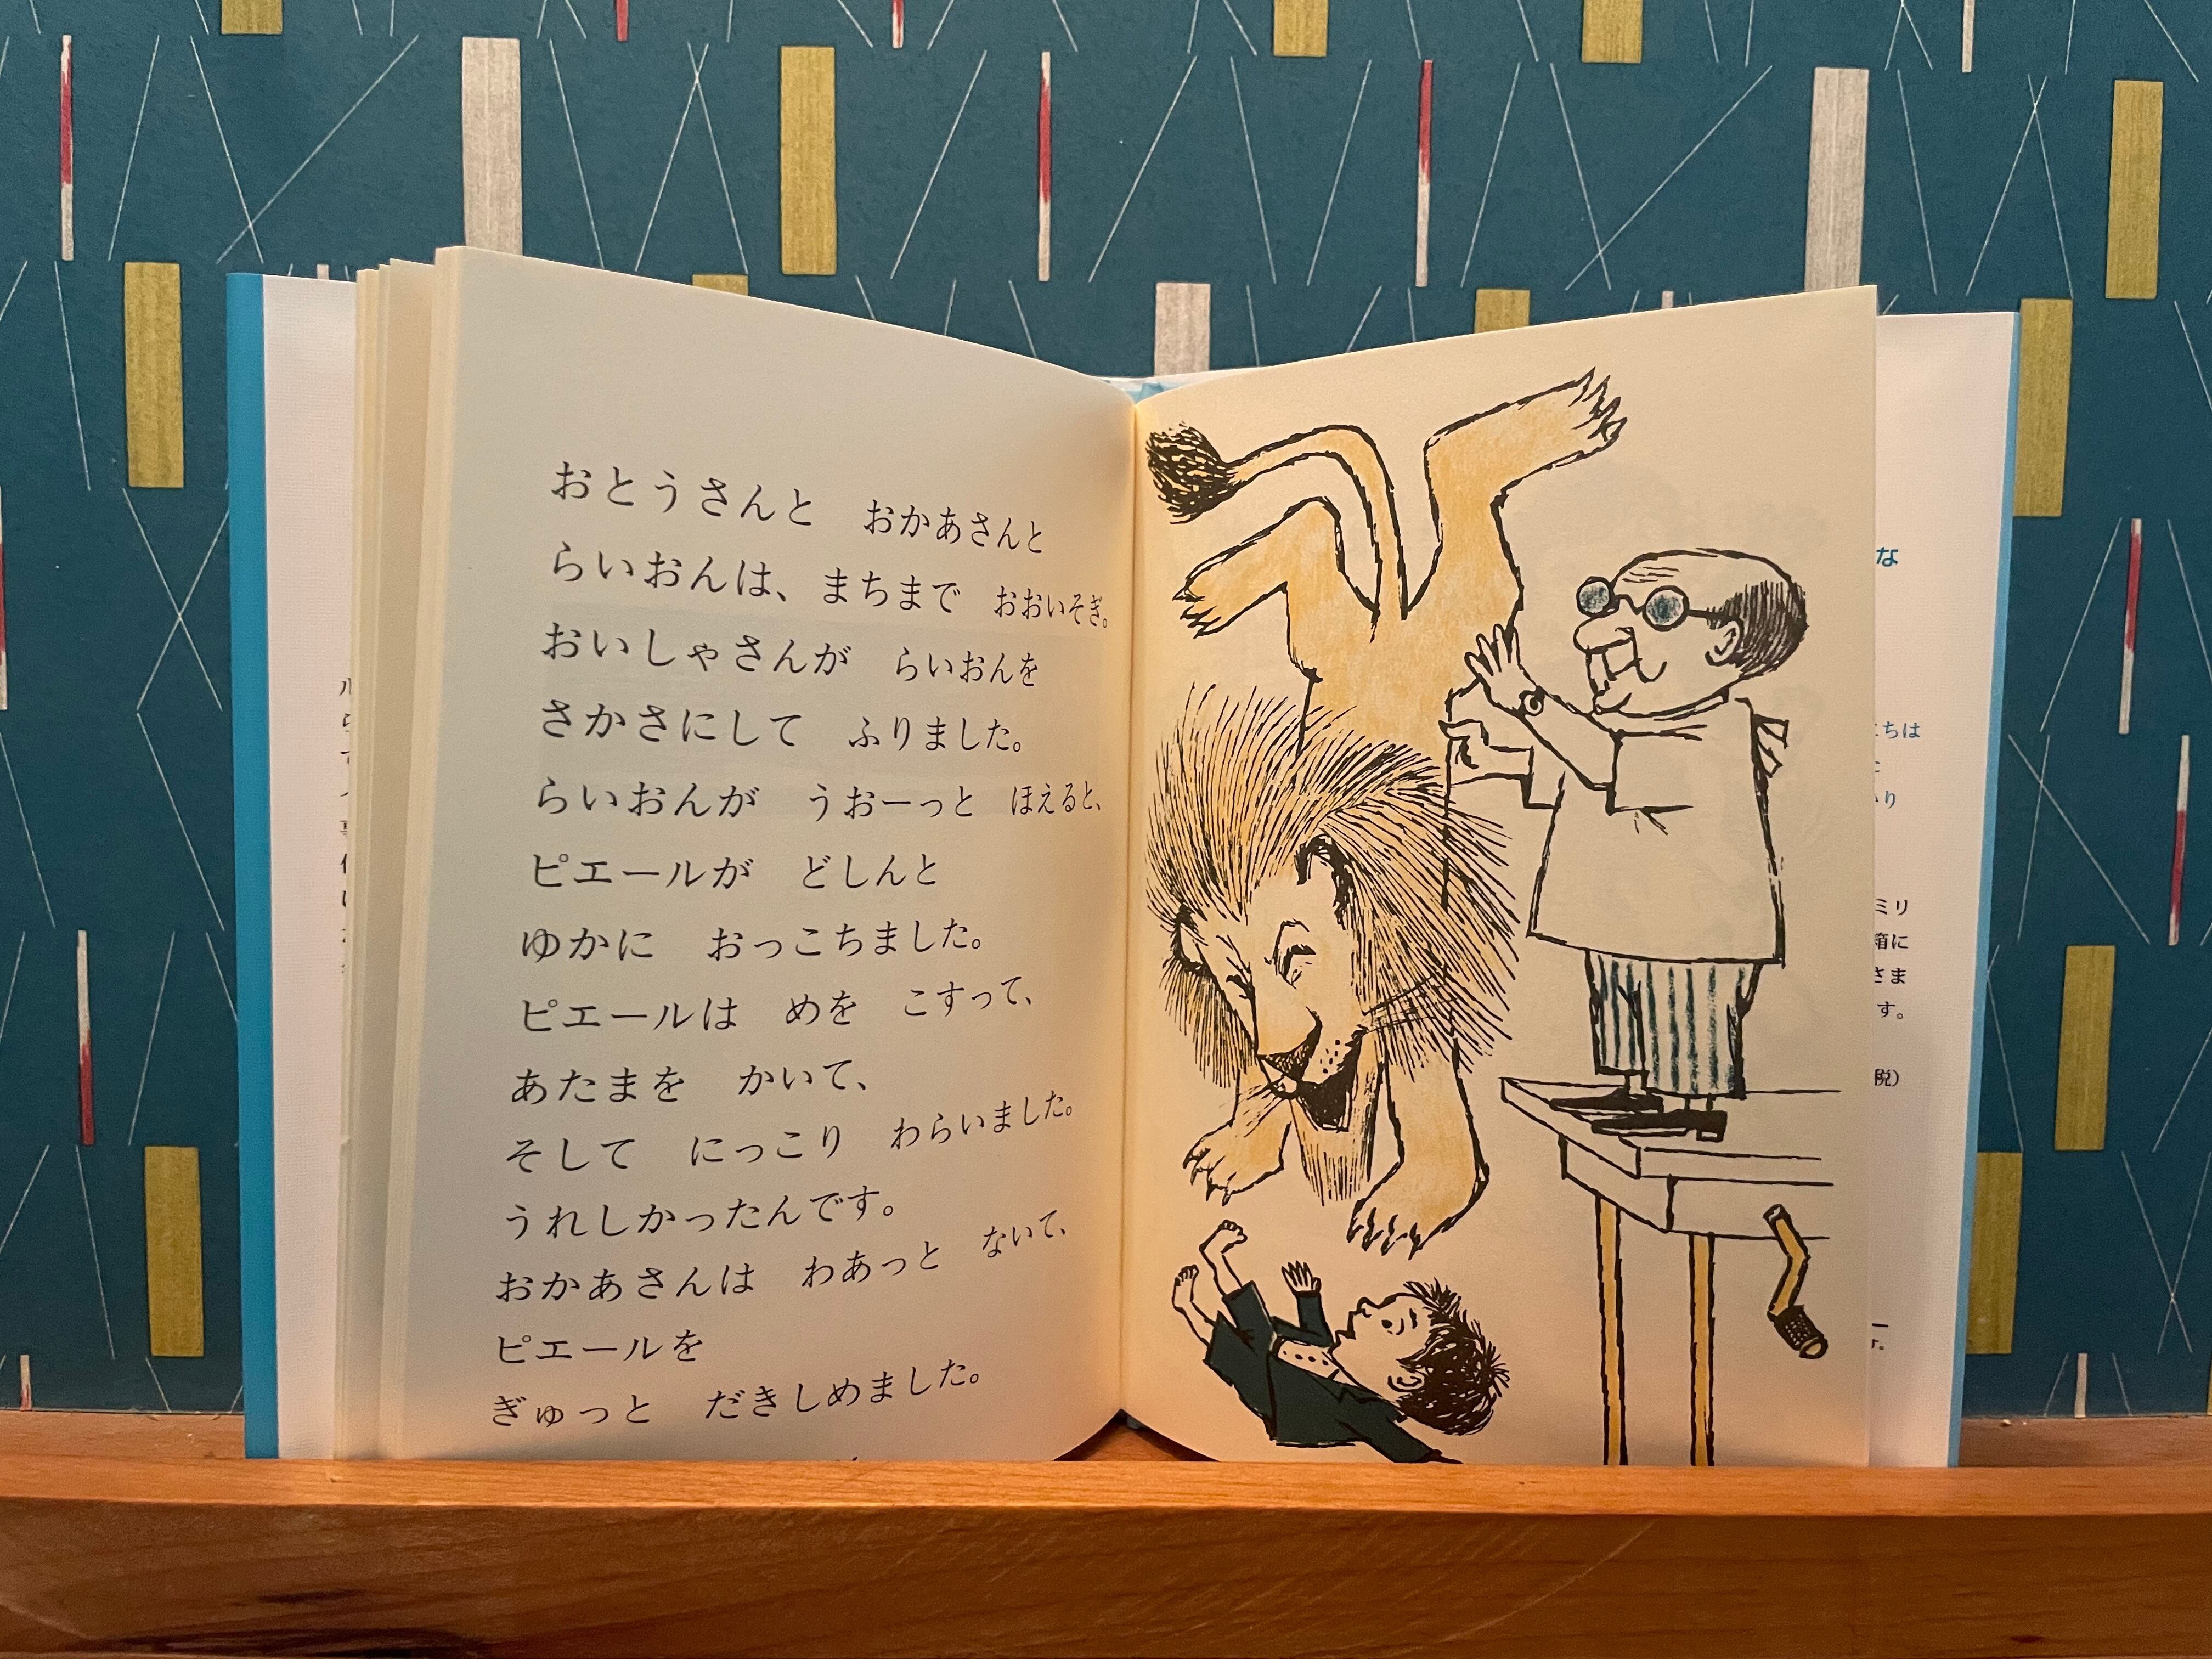 おとうさんと　おかあさんと
らいおんは、まちまで　おおいそぎ。
おいしゃさんが　らいおんを
さかさにして　ふりました。
らいおんが　うおーっと　ほえると、
ピエールが　どしんと
ゆかに　おっこちました。
ピエールは　めを　こすって、
あたまを　かいて、
そして　にっこり　わらいました。
うれしかったんです。
おかあさんは　わあっと　ないて、
ピエールを
ぎゅっと　だきしめました。
な
ちは
り
ミリ
箱に
さま
す。
税）